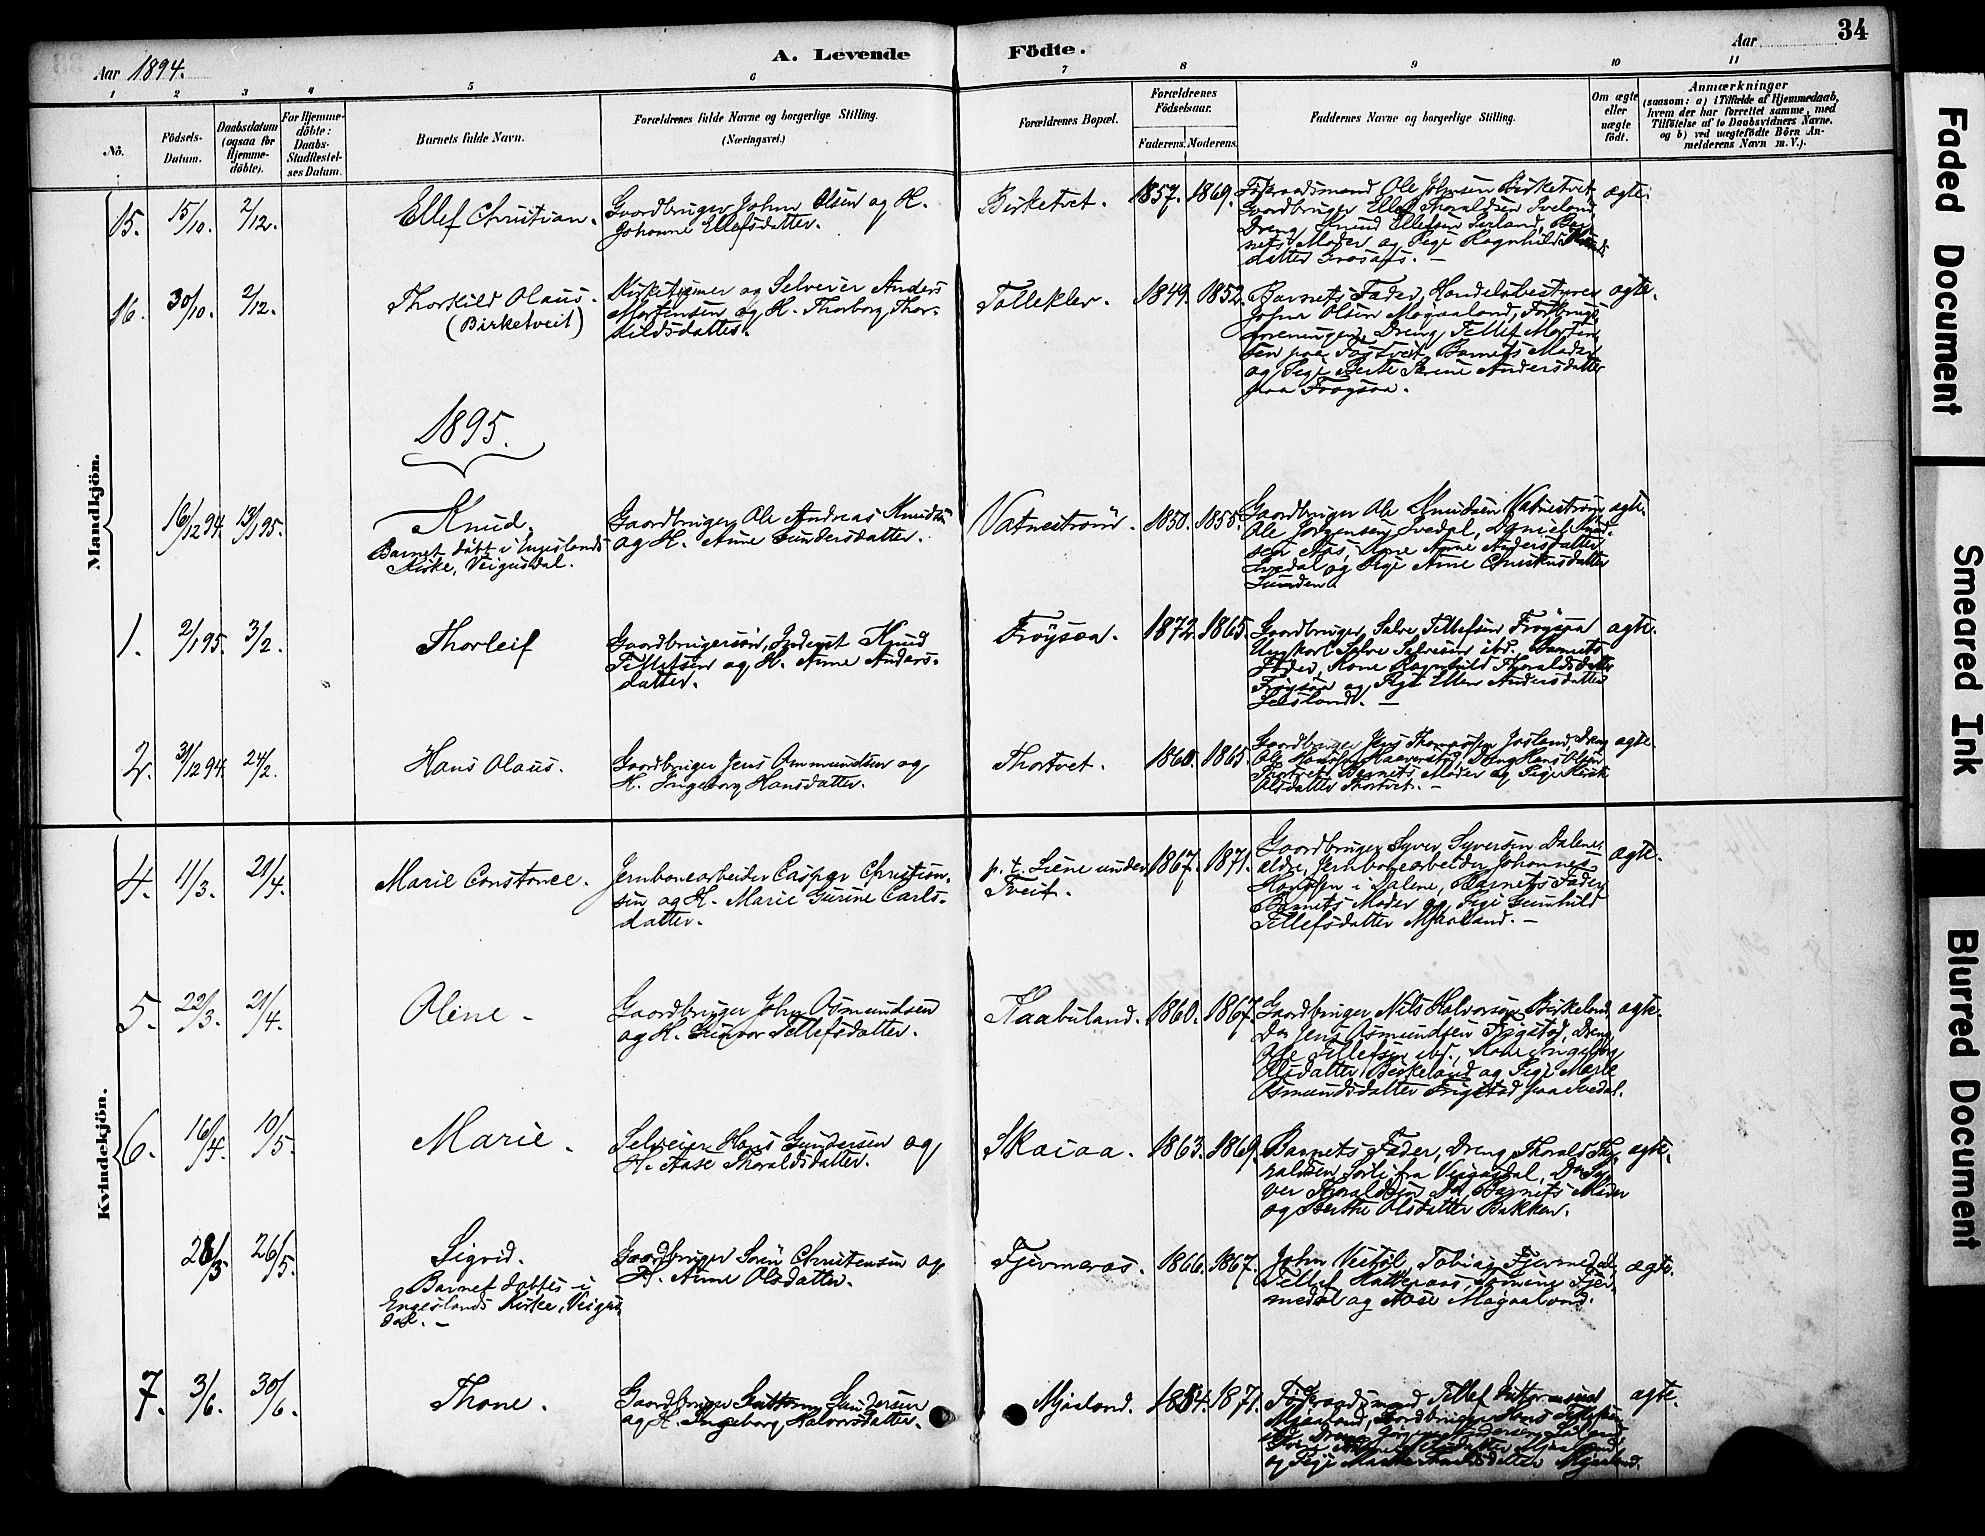 34
A. Levende Födte.
Aar 1894.
Aar
1 2 3 4 5 6 7 8 9 10 11
Nö.
Födsels-
Datum.
Daabsdatum
(ogsaa for
Hjemme-
döbte).
For Hjemme-
döbte:
Daabs-
Stadfæstel-
ses Datum.
Barnets fulde Navn.
Forældrenes fulde Navne og borgerlige Stilling.
(Næringsvei.)
Forældrenes Bopæl.
Forældrenes
Födselsaar.
Faderens. Moderens.
Faddernes Navne og borgerlige Stilling.
Om ægte
eller
uægte
født.
Anmærkninger
(saasom: a) i Tilfælde af Hjemmedaab,
hvem der har forrettet samme, med
Tilföielse af to Daabsvidners Navne.
og b) ved uægtefödte Börn An-
melderens Navn m. V.).
Mandkjön.
15. 15/10. 2/12. Ellef Christian. Gaardbruger John Olsen og H.
Johanne Ellefsdatter.
Birketvet. 1857. 1869. Föderaadsmand Ole Johnsen Birketvet
Gaardbruger Ellef Thoraldsen Iveland
Dreng Knud Ellefsen Iveland, Bar-
nets Moder og Pige Ragnhild Knuds
datter
ægte.
16. 30/10. 2/12. Thorkild Olaus.
(Birketveit)
Kirketjener og Selveier Anders
Mortensen og H. Thorborg Thor-
kildsdatter.
Tolleklev. 1849. 1852. Barnets Fader, Handelsbestyrer
John Olsen Mogaaland, Forbrugs
foreningen, Dreng, Tellef Morten
sen paa Barnets Moder
og Pige Berte Serine Andersdatter
paa Fröysaa.
ægte.
1895.
16/12 94. 13/1 95. Knud.
Barnet döbt i Engeslands
Kirke, Veigusdal.
Gaardbruger Ole Andreas Knudsen
og H. Anne Gundersdatter.
Vatnestrøm. 1850. 1855. Gaardbruger Ole Knudsen Vatnestrøm
Ole Jörgensen Ivedal, Daniel Knud-
sen Aas, Kone Anne Andersdatter
Ivedal og Pige Anne
ægte.
1. 2/1 95. 3/2. Thorleif Gaardbrugersøn, Inderst Knud
Tellefsen og H. Anne Anders-
datter.
Fröysaa. 1872. 1865. Gaardbruger Salve Tellefsen Fröysaa
Ungkarl Salve Salvesen ibd. Barnets
Fader, Kone Ragnhild Thoraldsdatter
Fröysaa og Pige Ellen Andersdatter
ægte.
2. 31/12 94. 24/2. Hans Olaus. Gaardbruger Jens Ommundsen og
H. Ingeborg Hansdatter.
Thortvet. 1860. 1865. Gaardbruger Jens Thomassen Josland, Dreng
Ole Hansen Haaverstad, Dreng Hans Olsen
Thortvet, Barnets Moder og Pige
Olsdatter Thortvet.
ægte.
Kvindekjön.
4. 11/3. 21/4. Marie Constance. Jernbanearbeider Casper Christian-
sen og H. Marie Gurine Carls-
datter.
p. t. Liene under
Tveit.
1867. 1871. Gaardbruger Syver Syversen Dalene
eldre, Jernbanearbeider Johannes
Hansen i Dalene, Barnets Fader
Barnets Moder og Pige Gunhild
Tellefsdatter Mjaaland.
ægte.
5. 22/3. 21/4. Oline Gaardbruger John Osmundsen
og H. Gunvor Tellefsdatter.
Kaabuland. 1860. 1867. Gaardbruger Nils Halvorsen Birkeland
Do Jens Osmundsen Frigstad, Dreng
Ole Tellefsen ibd., Kone Ingeborg
Olsdatter Birkeland og Pige Marte
Osmundsdatter Frigstad fra Ivedal.
ægte.
6. 16/4. 10/5. Marie. Selveier Hans Gundersen og
H. Aase Thoraldsdatter.
Skaiaa. 1863. 1869. Barnets Fader, Dreng Thorald Tho-
raldsen fra Veigusdal, Do Sy-
ver Thoraldsen Do, Barnets Moder
og Berthe Olsdatter Bakken.
ægte.
28/3 26/5. Sigrid.
Barnet döbtes i
Engeslands Kirke, Veigus
dal.
Gaardbruger Sören Christensen og
H. Anne Olsdatter.
Fjermeros. 1866. 1867. John Tobias Fjermedal,
Tellef Hatteraas, Fjer-
medal og Aase Mogaaland.
ægte.
7. 3/6. 30/6. Thone. Gaardbruger Guttorm Gundersen
og H. Ingeborg Halvorsdatter.
Mjaaland. 1854. 1871. Föderaadsmand Tellef Guttormsen
Mjaaland, Gaardbruger Hans Tellefsen
ibd. Dreng
Mjaaland
og Pige Mjaaland.
ægte.
Faded Document
Smeared Ink
Blurred Document